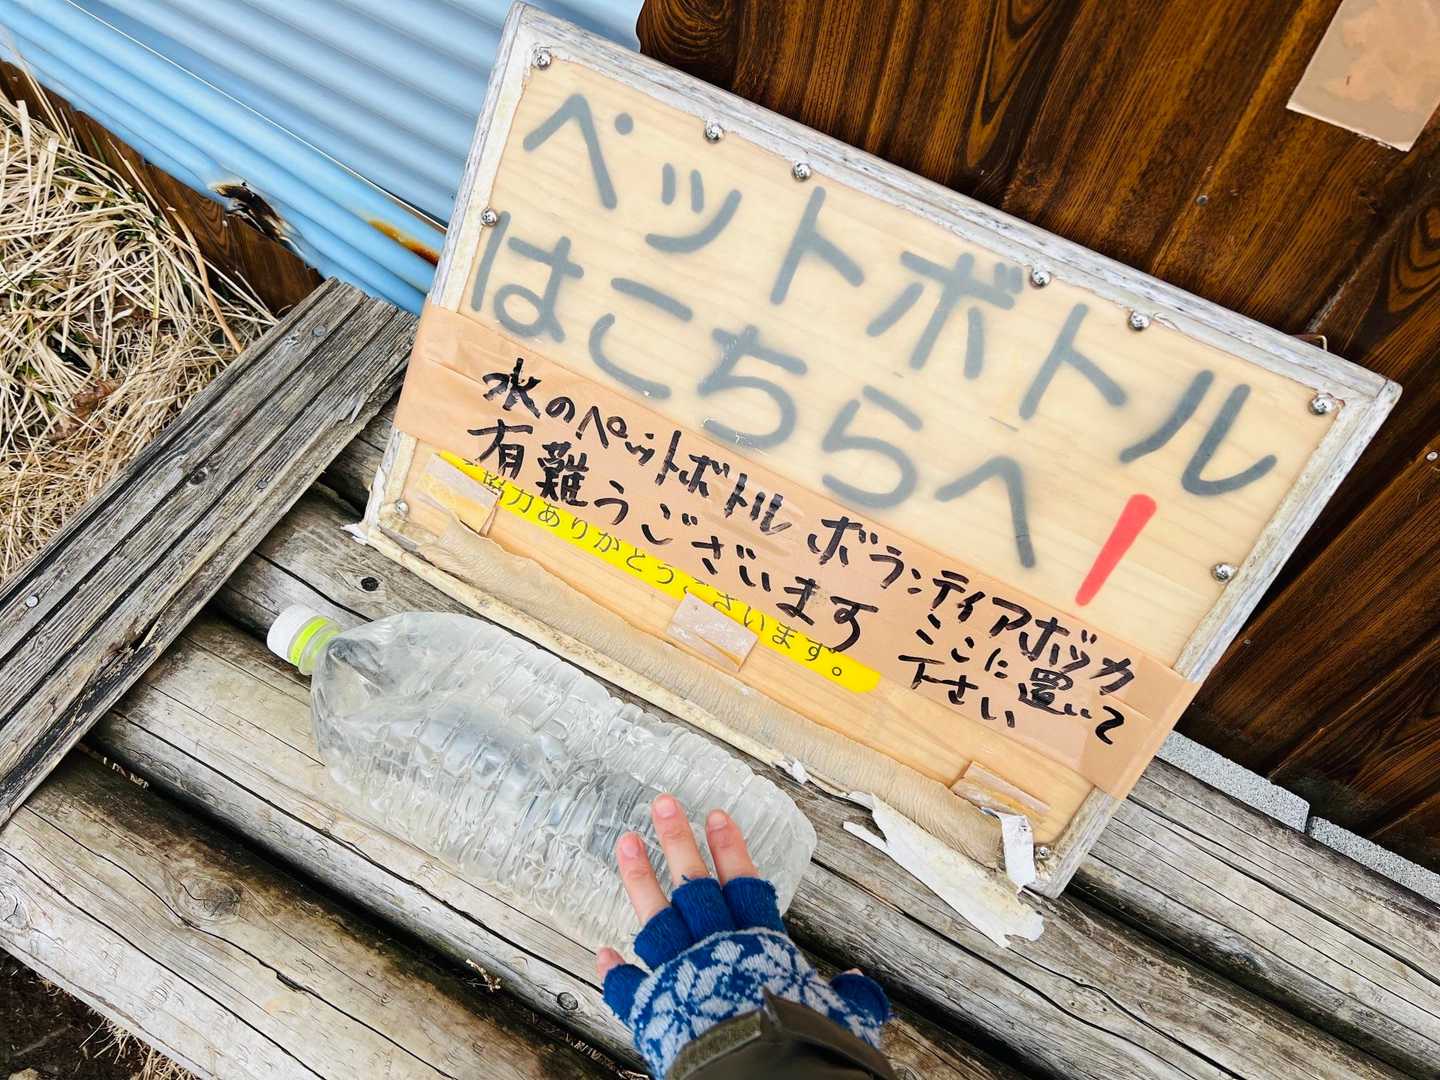 ペットボトル
はこちらへ!
水のペットボトル ボランティアボッカ
有難うございます ここに置いて
下さい
協力ありがとうございます。